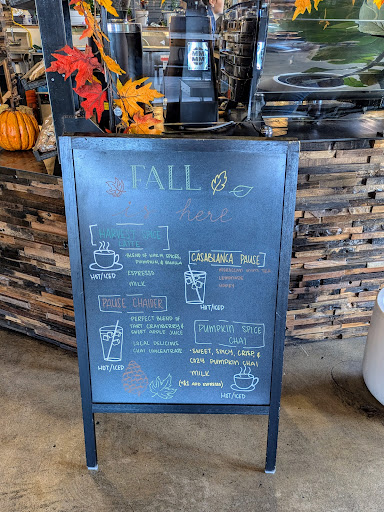 FALL
here
HARVEST SPICE
LATTE
BLEND OF WARM SPICES,
PUMPKIN, & VANILLA
ESPRESSO
MILK
HOT/ICED
CASABLANCA PAUSE
MOROCCAN MINT TEA
LEMONADE
HONEY
HOT/ICED
PAUSE CHAIDER
PERFECT BLEND OF
TART CRANBERRY &
SWEET APPLE JUICE
LOCAL DELICIOUS
CHAI CONCENTRATE
HOT/ICED
PUMPKIN SPICE
CHAI
SWEET, SPICY, CRISP, &
COZY PUMPKIN CHAI
MILK
(+$1 ADD ESPRESSO)
HOT/ICED